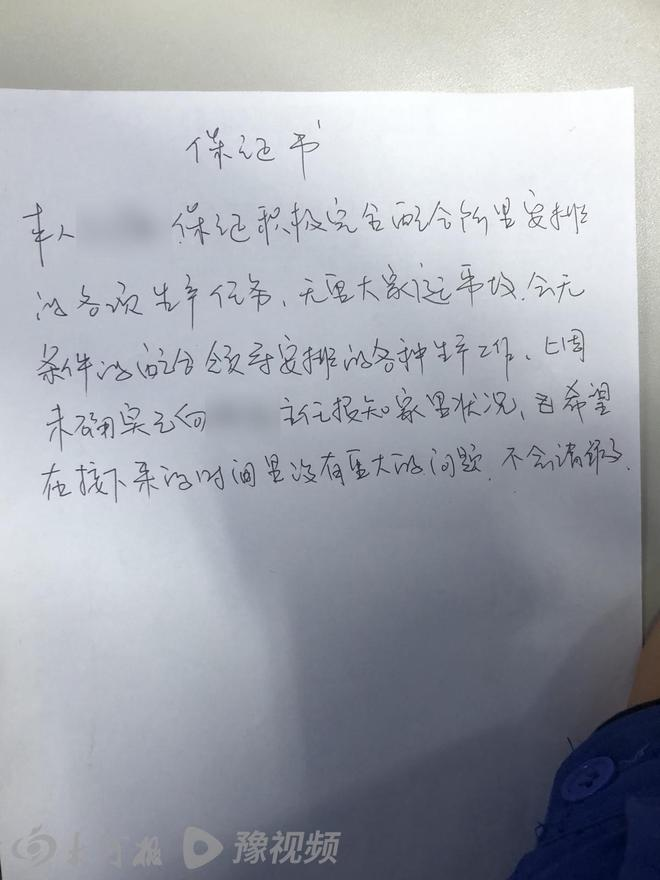 保证书
本人 保证积极完全配合所里安排
的各项生产任务、无重大家庭事故.会无
条件的配合领导安排的各种生产工作、上周
末确实已向 主任报知家里状况,也希望
在接下来的时间里没有重大的问题.不会请假了.
大河报 豫视频